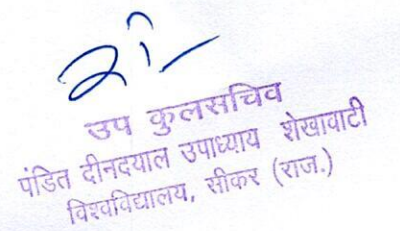 उप कुलसचिव
पंडित दीनदयाल उपाध्याय शेखावाटी
विश्वविद्यालय, सीकर (राज.)